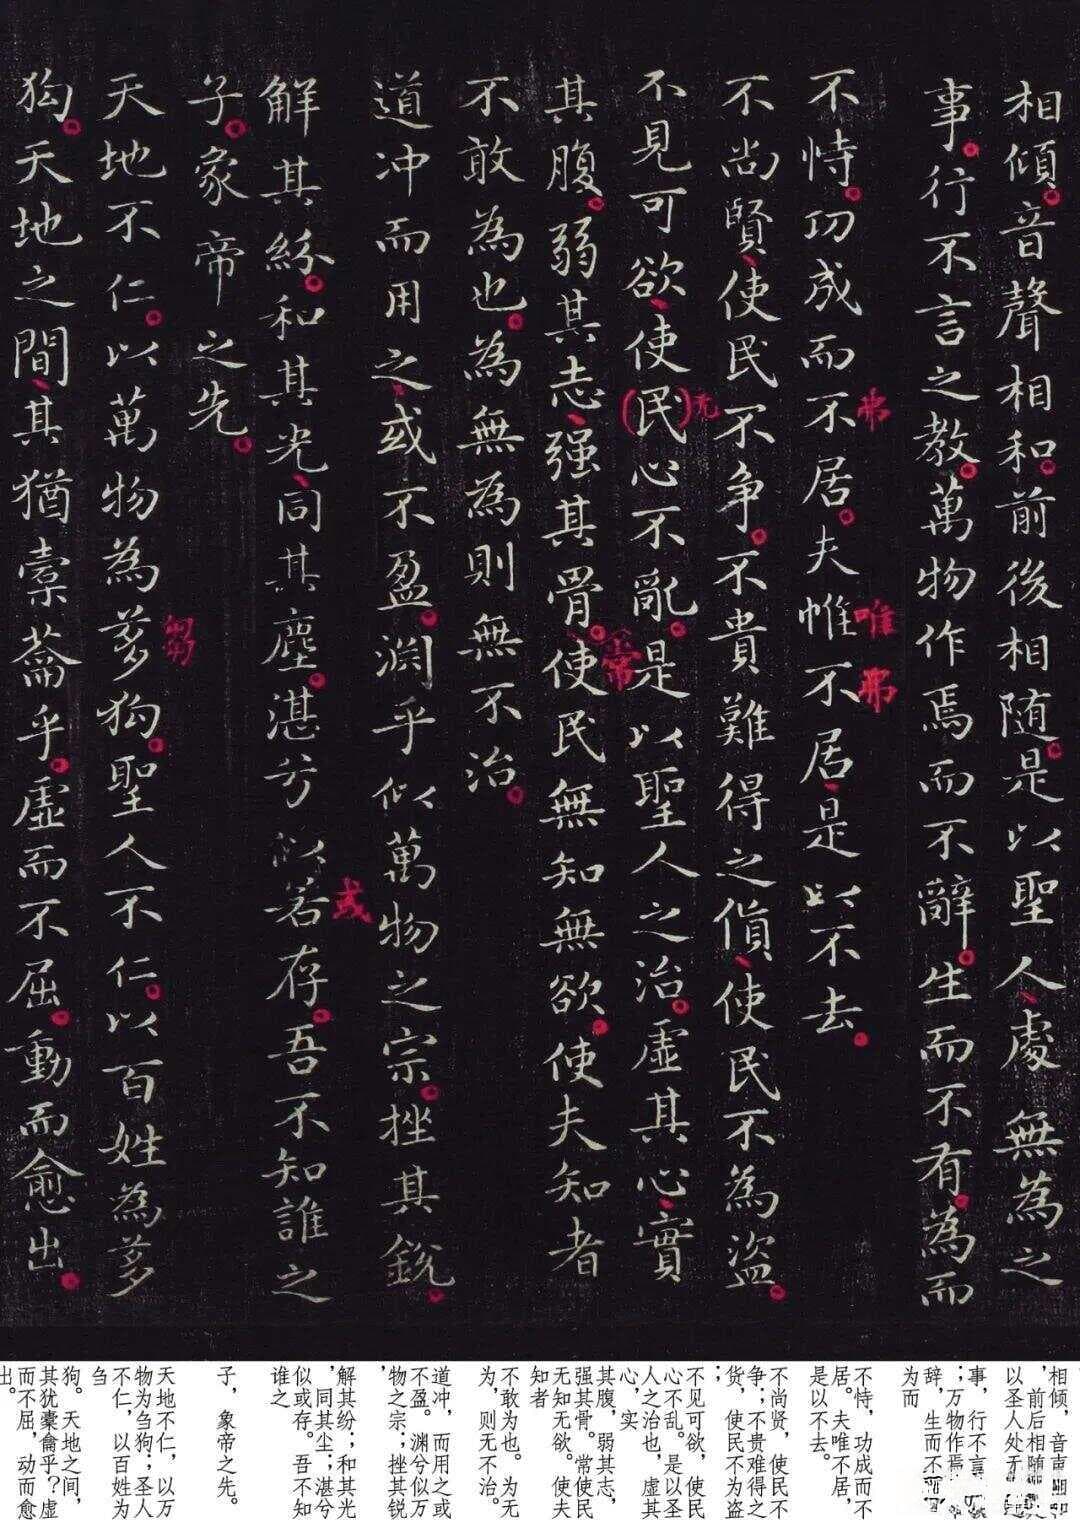 相傾。音聲相和。前後相随。是以聖人、處無為之
事。行不言之教。萬物作焉而不辭。生而不有。為而
不恃。功成而不居。夫惟不居、是以不去。
弗
唯弗
不尚賢、使民不争。不貴難得之貨、使民不為盗。
不見可欲、使(民)心不亂。是以聖人之治。虛其心、實
无
其腹。弱其志、强其骨。使民無知無欲。使夫知者
常
不敢為也。為無為則無不治。
道冲而用之、或不盈。渊乎似萬物之宗。挫其銳。
解其紛。和其光、同其塵。湛兮似若存。吾不知誰之
或
子。象帝之先。
天地不仁。以萬物為芻狗。聖人不仁。以百姓為芻
芻
狗。天地之間、其猶橐籥乎。虛而不屈。動而愈出。
相倾，音声相和
，前后相随。是
以圣人处于无
事，行不言之教
；万物作焉而不
辞，生而不有
为而
不恃，功成而不
居。夫唯不居，
是以不去。
不尚贤，使民不
争；不贵难得之
货，使民不为盗
不见可欲，使民
心不乱。是以圣
人之治也，虚其
心，实
其腹，弱其志，
强其骨。常使民
无知无欲。使夫
知者
不敢为也。为无
为，则无不治。
道冲，而用之或
不盈。渊兮似万
物之宗；挫其锐
，
解其纷；和其光
，同其尘；湛兮
似或存。吾不知
谁之
子，象帝之先。
天地不仁，以万
物为刍狗；圣人
不仁，以百姓为
刍
狗。天地之间，
其犹橐龠乎？虚
而不屈，动而愈
出。